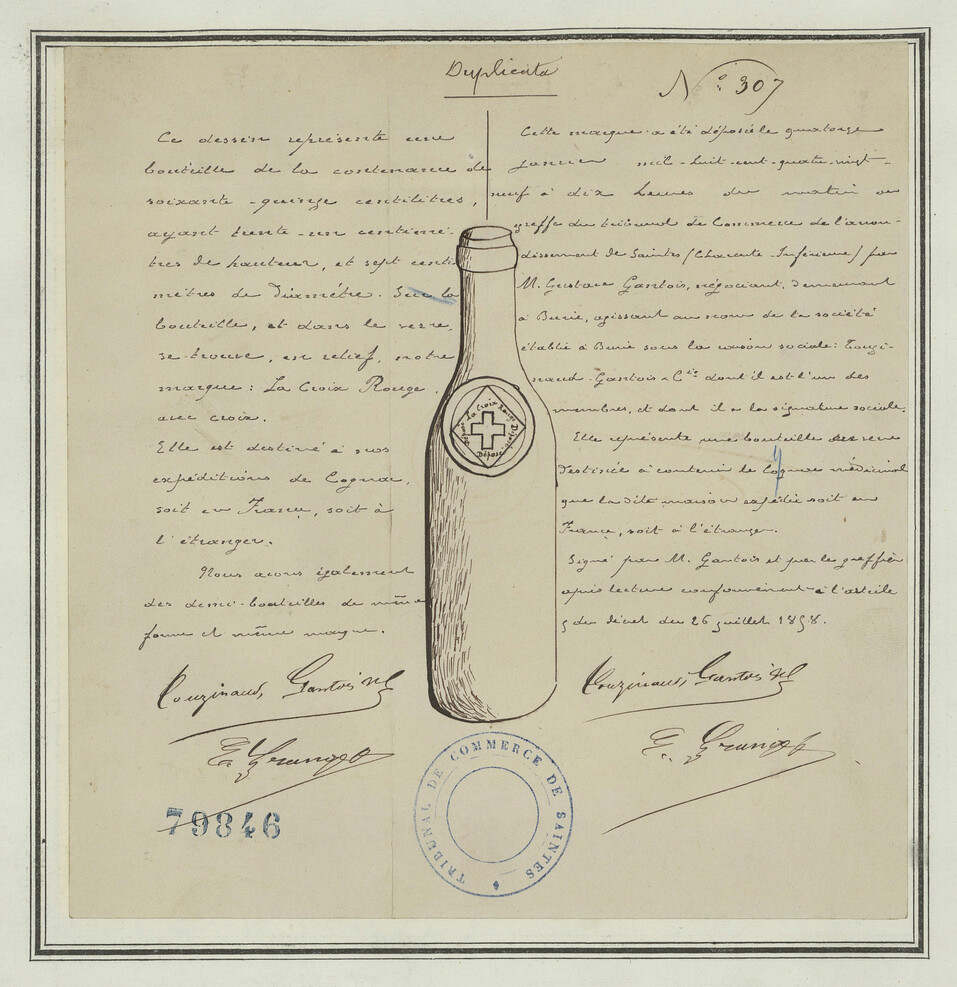 Duplicata
N° 307
Ce dessin représente une
bouteille de la contenance de
soixante-quinze centilitres,
ayant trente-un centimè-
tres de hauteur, et sept centi-
mètres de diamètre. Sur la
bouteille, et dans le verre,
se trouve, en relief, notre
marque: La Croix Rouge
avec croix.
Elle est destinée à nos
expéditions de Cognac,
soit en France, soit à
l'étranger.
Nous avons également
des demi-bouteilles de même
forme et même marque.
Gantois
79846
La Croix Rouge
Déposé
Cette marque a été déposée le quatorze
janvier mil-huit-cent-quatre-vingt-
neuf à dix heures du matin au
greffe du tribunal de Commerce de l'arron-
dissement de Saintes (Charente-Inférieure) par
M. Gustave Gantois, négociant, demeurant
à Burie, agissant au nom de la société
établie à Burie sous la raison sociale: Couzi-
naud-Gantois & Cie dont il est l'un des
membres, et dont il a la signature sociale.
Elle représente une bouteille en verre
destinée à contenir le Cognac médicinal
que la dite maison expédie soit en
France, soit à l'étranger.
Signé par M. Gantois et par le greffier
après lecture conformément à l'article
5 du décret du 26 juillet 1858.
Couzinaud, Gantois
TRIBUNAL DE COMMERCE DE SAINTES